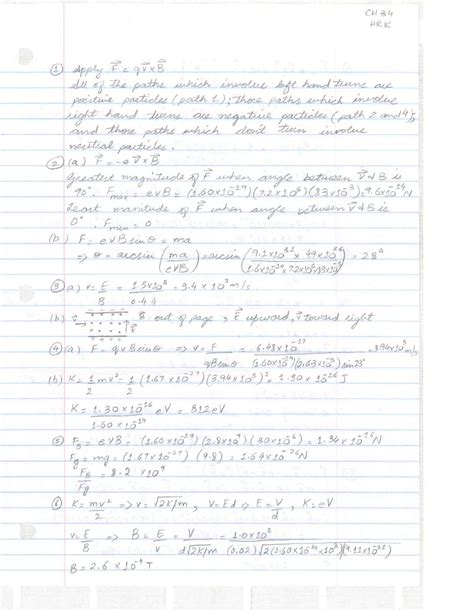 CH 34
HRK
① Apply F⃗ = qv⃗ × B⃗
All of the paths which involve left hand turns are
positive particles (path 1); those paths which involve
right hand turns are negative particles (path 2 and 4);
and those paths which don't turn involve
neutral particles.
② (a) F⃗ = -e v⃗ × B⃗
Greatest magnitude of F⃗ when angle between v⃗ & B⃗ is
90°. F_max = evB = (1.60×10⁻¹⁹)(7.2×10⁶)(83×10⁻³) = 9.6×10⁻¹⁴N
Least manitude of F⃗ when angle between v⃗ & B⃗ is
0°. F_min = 0
(b) F = evB sinθ = ma
⇒ θ = arcsin(ma/evB) = arcsin(9.1×10⁻³¹ × 49×10¹⁶/1.6×10⁻¹⁹ 7.2×10⁶ 83×10⁻³) = 28°
③ a) v = E/B = 1.5×10³/0.44 = 3.4×10³ m/s.
(b) B⃗ out of page, E⃗ upward, v⃗ toward right
④ (a) F = qvB sinθ ⇒ v = F/qB sinθ = 6.48×10⁻¹⁷/(1.60×10⁻¹⁹)(2.63×10⁻³) sin23° = 3.94×10⁵ m/s
(b) K = 1/2 mv² = 1/2 (1.67×10⁻²⁷)(3.94×10⁵)² = 1.30×10⁻¹⁶ J
K = 1.30×10⁻¹⁶/1.60×10⁻¹⁹ eV = 812 eV
⑤ F_B = evB = (1.60×10⁻¹⁹)(2.8×10⁷)(30×10⁻⁶) = 1.34×10⁻¹⁶N
F_g = mg = (1.67×10⁻²⁷)(9.8) = 1.64×10⁻²⁶N
F_B/F_g = 8.2×10⁹
⑥ K = mv²/2 ⇒ v = √2K/m, V = Ed ⇒ E = V/d, K = eV
v = E/B ⇒ B = E/v = V/d√2K/m = 1.0×10³/(0.02)√2(1.60×10⁻¹⁹ ×10³)/(9.11×10⁻³¹)
B = 2.6×10⁻⁴ T